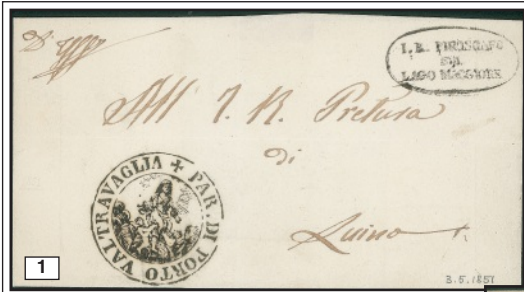 D'Uff°
I. R. PIROSCAFO
SUL
LAGO MAGGIORE
All' I. R. Pretura
di
Luino
PAR. DI PORTO VALTRAVAGLIA
1
3.5.1851